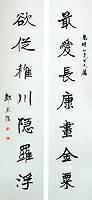 最愛長康畫金粟
欲從稚川隱羅浮